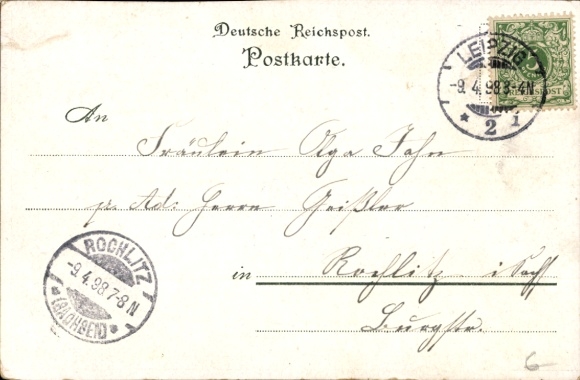 Deutsche Reichspost.
Postkarte.
LEIPZIG
-9. 4. 98. 3-4N
* 2 i
REICHSPOST
An
Fräulein Aga Jahn
pr. Ad. Herrn Geißler
in Rochlitz i Sachs
Burgstr.
ROCHLITZ
-9. 4. 98. 7-8N
* (SACHSEN) *
6-